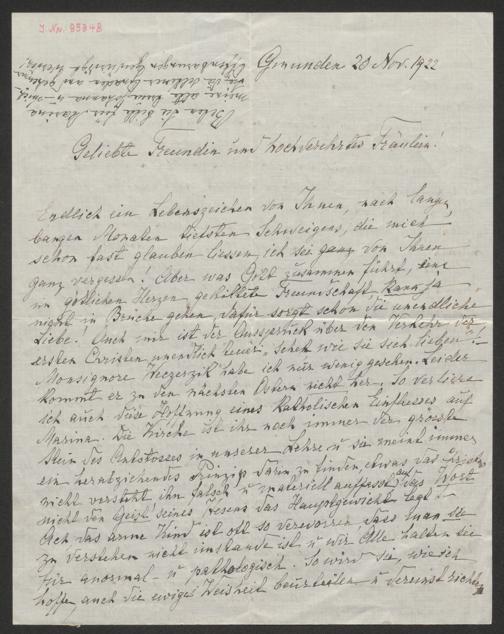 J. Nr. 95848
Gmunden 20 Nov. 1922
Geliebte Freundin und hochverehrtes Fräulein!
Endlich ein Lebenszeichen von Ihnen, nach langen,
bangen Monaten tiefsten Schweigens, die mich
schon fast glauben liessen, ich sei ganz von Ihnen
ganz vergessen! Aber was Gott zusammen führt, eine
im göttlichen Herzen geknüpfte Freundschaft, kann ja
nicht in Brüche gehen, dafür sorgt schon die unendliche
Liebe. Auch mir ist der Ausspruch über den Verkehr der
ersten Christen unendlich teuer: "sehet wie sie sich lieben"!
Monsignore habe ich nur wenig gesehen. Leider
kommt er zu den nächsten Ostern nicht her. So verliere
ich auch diese Hoffnung eines katholischen Einflusses auf
Marina. Die Kirche ist ihr noch immer der grösste
Stein des Anstosses in unserer Lehre, u sie meint immer
ein herabziehendes Prinzip darin zu finden, etwas das Christus
nicht versteht ihn falsch u materiell auffasst, auf das Wort
nicht den Geist seines Wesens das Hauptgewicht legt!
Ach das arme Kind ist oft so verworren, dass man sie
zu verstehen nicht imstande ist u wir Alle halten sie
für anormal - u pathologisch. So wird sie, wie ich
hoffe, auch die ewige Weisheit beurteilen u dereinst richten